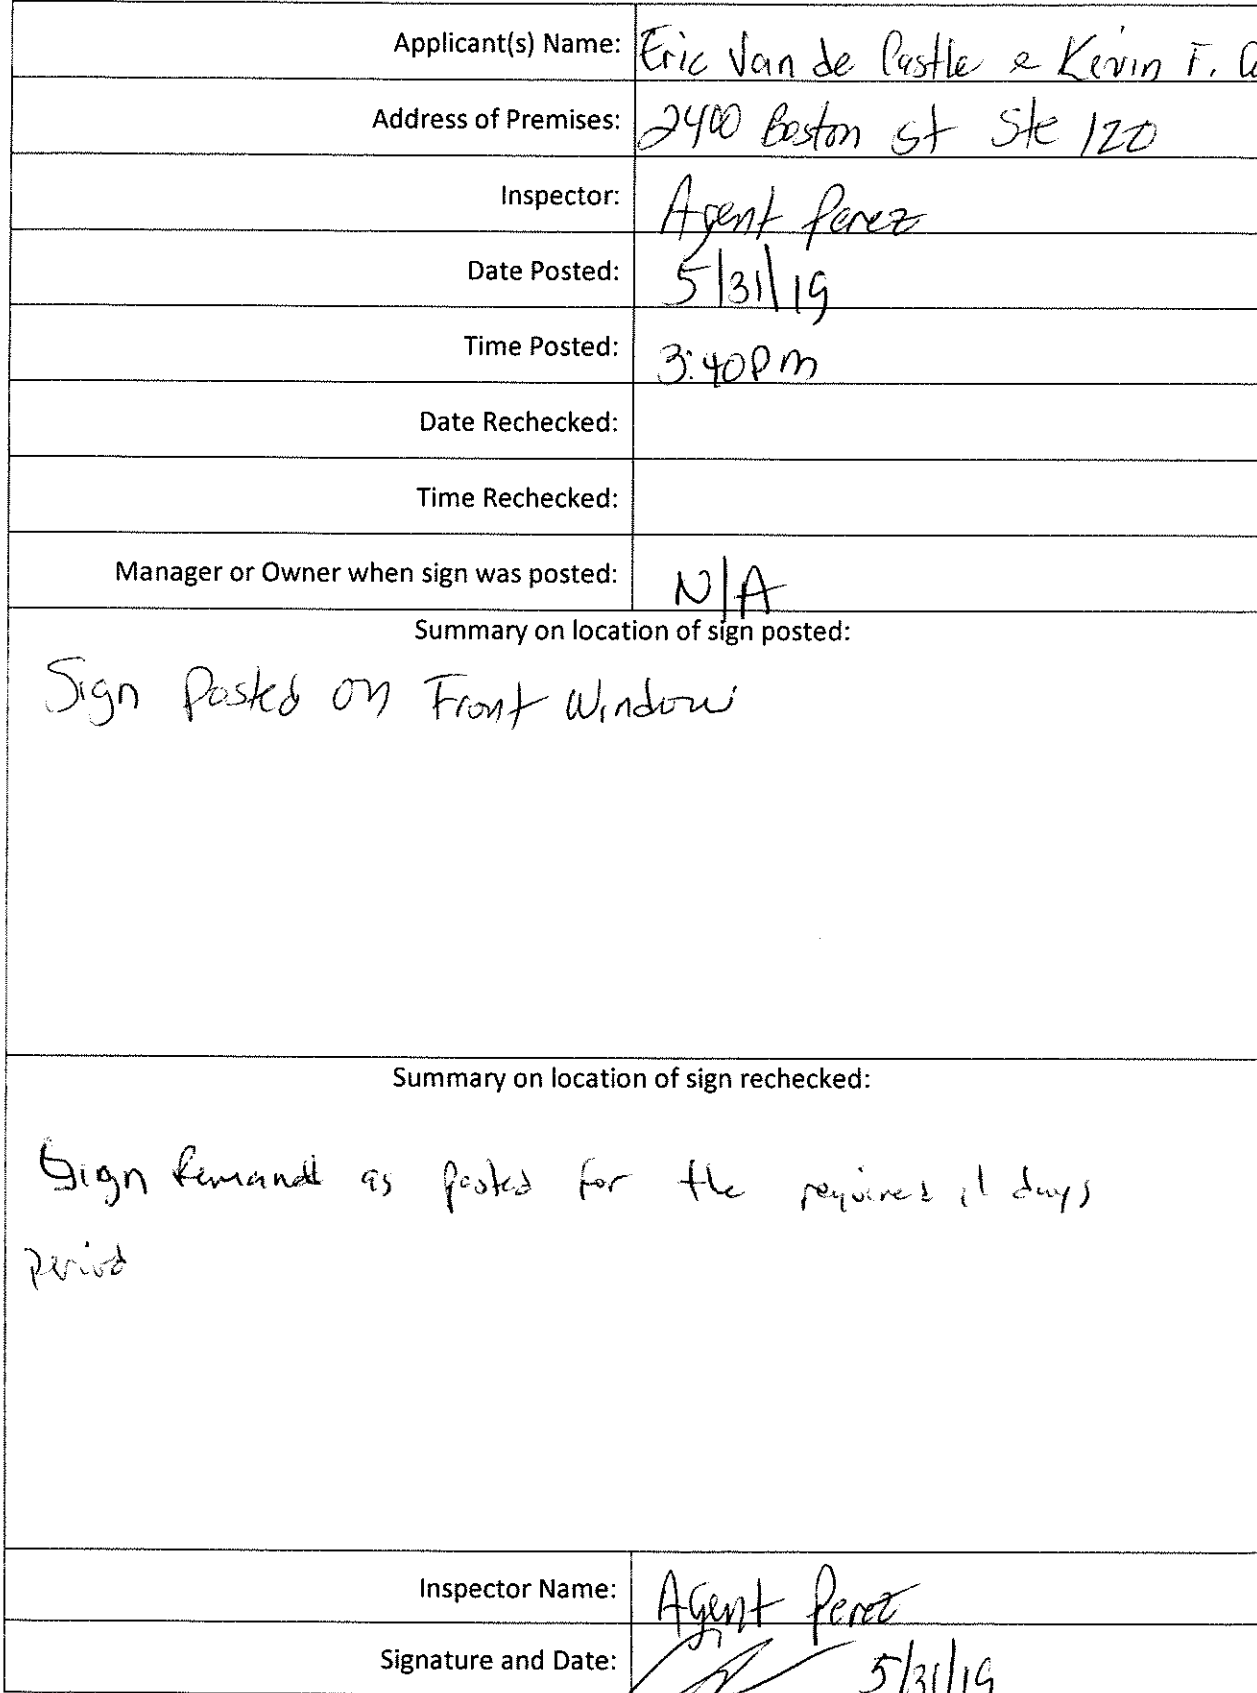 Applicant(s) Name: Eric Van de Castle & Kevin F.
Address of Premises: 2400 Boston St Ste 120
Inspector: Agent Perez
Date Posted: 5/31/19
Time Posted: 3:40PM
Date Rechecked:
Time Rechecked:
Manager or Owner when sign was posted: N/A
Summary on location of sign posted:
Sign Posted on Front Window
Summary on location of sign rechecked:
Sign as posted for the required days
period
Inspector Name: Agent Perez
Signature and Date: 5/31/19